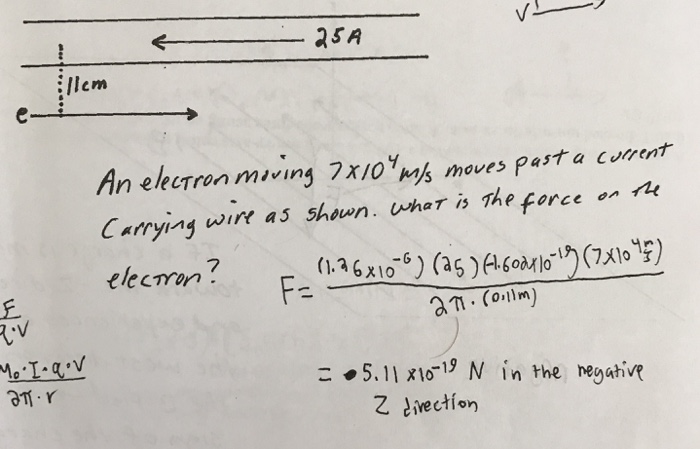 V
25A
11cm
e-
An electron moving 7x10⁴ m/s moves past a current
Carrying wire as shown. what is the force on the
electron?
F= (1.26x10⁻⁶)(25)(-1.602x10⁻¹⁹)(7x10⁴ m/s) / 2π·(0.11m)
F / q·V
μ₀·I·q·V / 2π·r
= 5.11 x10⁻¹⁹ N in the negative
Z direction